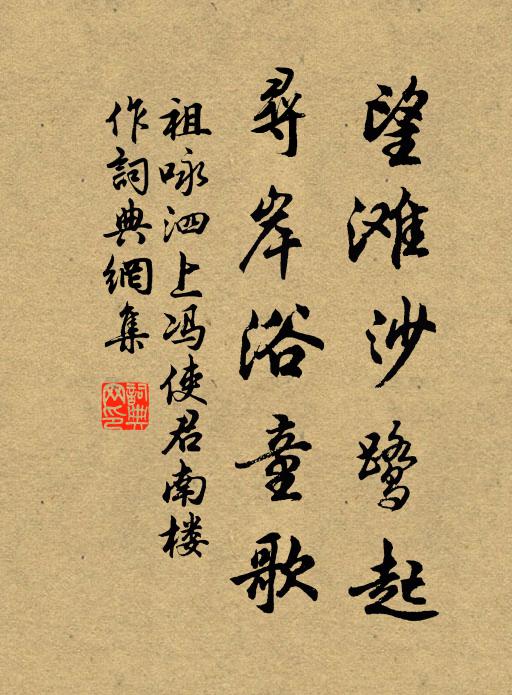 望滩沙鹭起
尋岸浴童歌
祖咏泗上冯使君南楼
作詞典網集
詞典网印